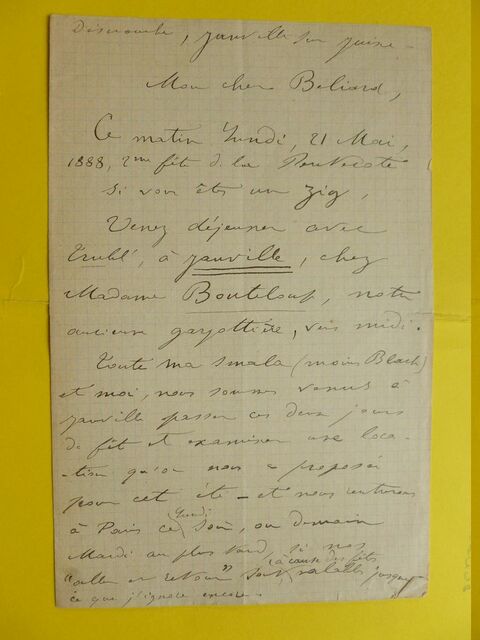 Dimanche, Janville sur Juine.
Mon cher Beliard,
Ce matin Lundi, 21 Mai,
1888, 2me fête de la Pentecôte
si vous êtes un zig,
Venez déjeuner avec
Trublé, à Janville, chez
Madame Bouteloup, notre
ancienne gargottière, vers midi.
Toute ma smala (moins Black)
et moi, nous sommes venus à
Janville passer ces deux jours
de fête et examiner une loca-
tion qu'on nous a proposée
pour cet été — et nous rentrons
à Paris ce Lundi soir, ou demain
Mardi au plus tard, si nos
"aller et retour" sont (à cause des fêtes) valables jusque
ce que j'ignore encore.